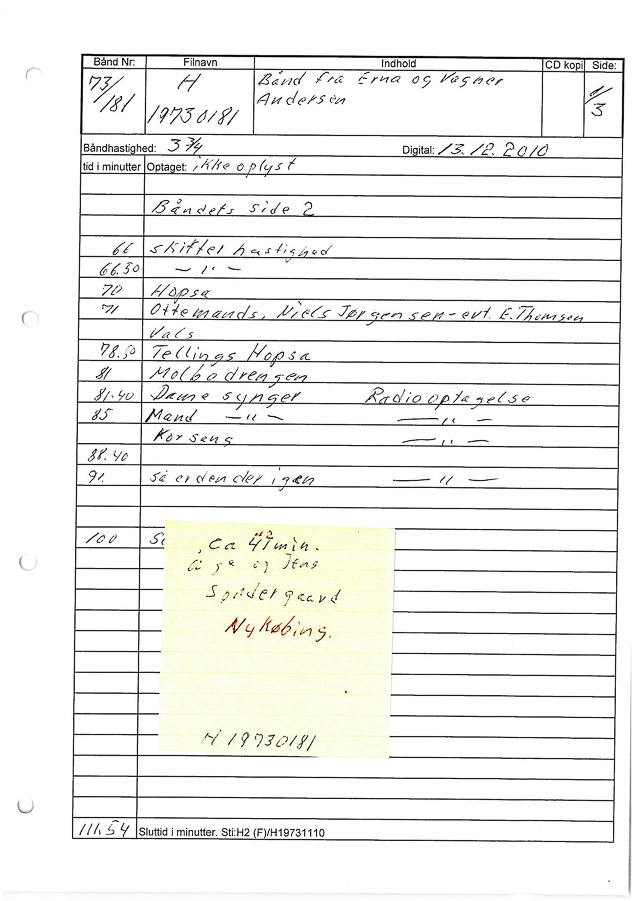 Bånd Nr: Filnavn Indhold CD kopi Side:
73/181 H 19730181 Bånd fra Erna og Vagner Andersen 1/3
Båndhastighed: 3 3/4 Digital: 13.12.2010
tid i minutter Optaget: ikke oplyst
Båndets side 2
66 skifter hastighed
66.50 — " —
70 Hopsa
71 Ottemands, Niels Jørgensen - evt. E. Thomsen
Vals
78.50 Tellings Hopsa
81 Molbodrengen
81.40 Dame synger Radiooptagelse
85 Mand — " — — " —
Korsang — " —
88.40
91. Så er den der igen — " —
100
Ca min.
og Jens
Søndergaard
Nykøbing.
H 19730181
111.54 Sluttid i minutter. Sti:H2 (F)/H19731110